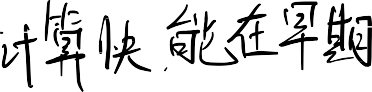 计算快,能在早期